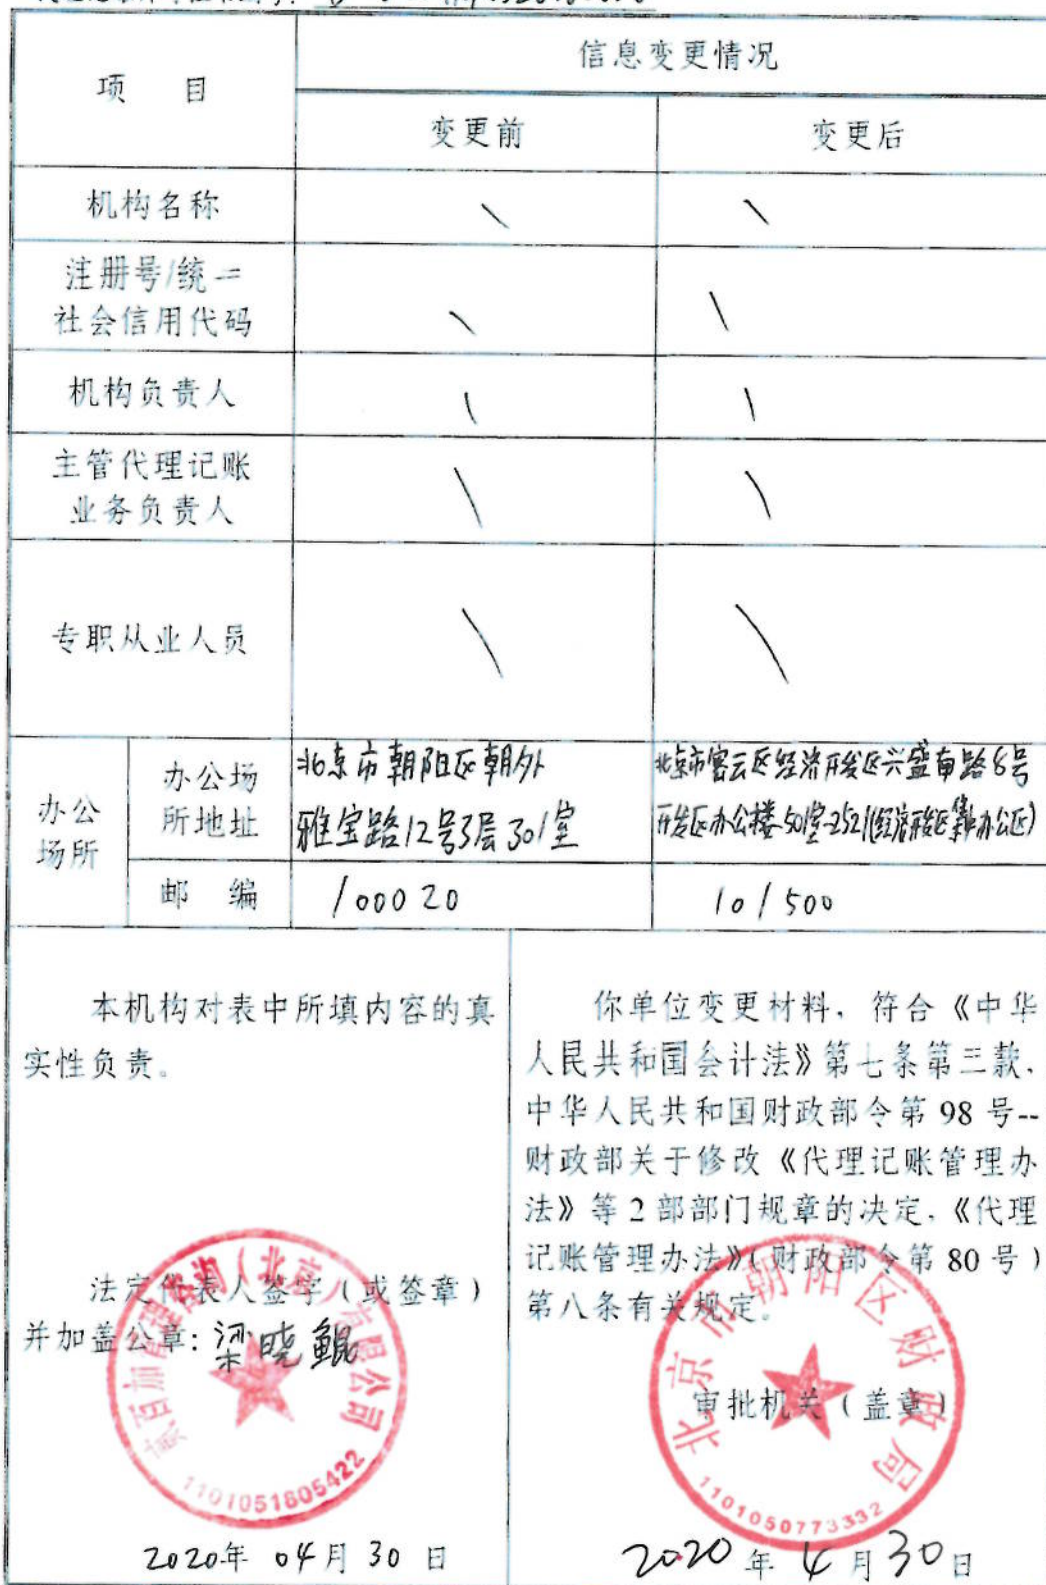 项 目
信息变更情况
变更前
变更后
机构名称
\
\
注册号/统一
社会信用代码
\
\
机构负责人
\
\
主管代理记账
业务负责人
\
\
专职从业人员
\
\
办公
场所
办公场
所地址
北京市朝阳区朝外
雅宝路12号3层301室
北京市密云区经济开发区兴盛南路8号
开发区办公楼501室-2521(经济开发区集中办公区)
邮 编
100020
101500
本机构对表中所填内容的真
实性负责。
法定代表人签字（或签章）
并加盖公章：梁晓鲲
(北京)有限公司
1101051805422
2020年 04月 30 日
你单位变更材料，符合《中华
人民共和国会计法》第七条第三款，
中华人民共和国财政部令第 98 号--
财政部关于修改《代理记账管理办
法》等 2 部部门规章的决定，《代理
记账管理办法》（财政部令第 80 号）
第八条有关规定。
审批机关（盖章）
北京市朝阳区财政局
1101050773332
2020 年 4 月 30 日